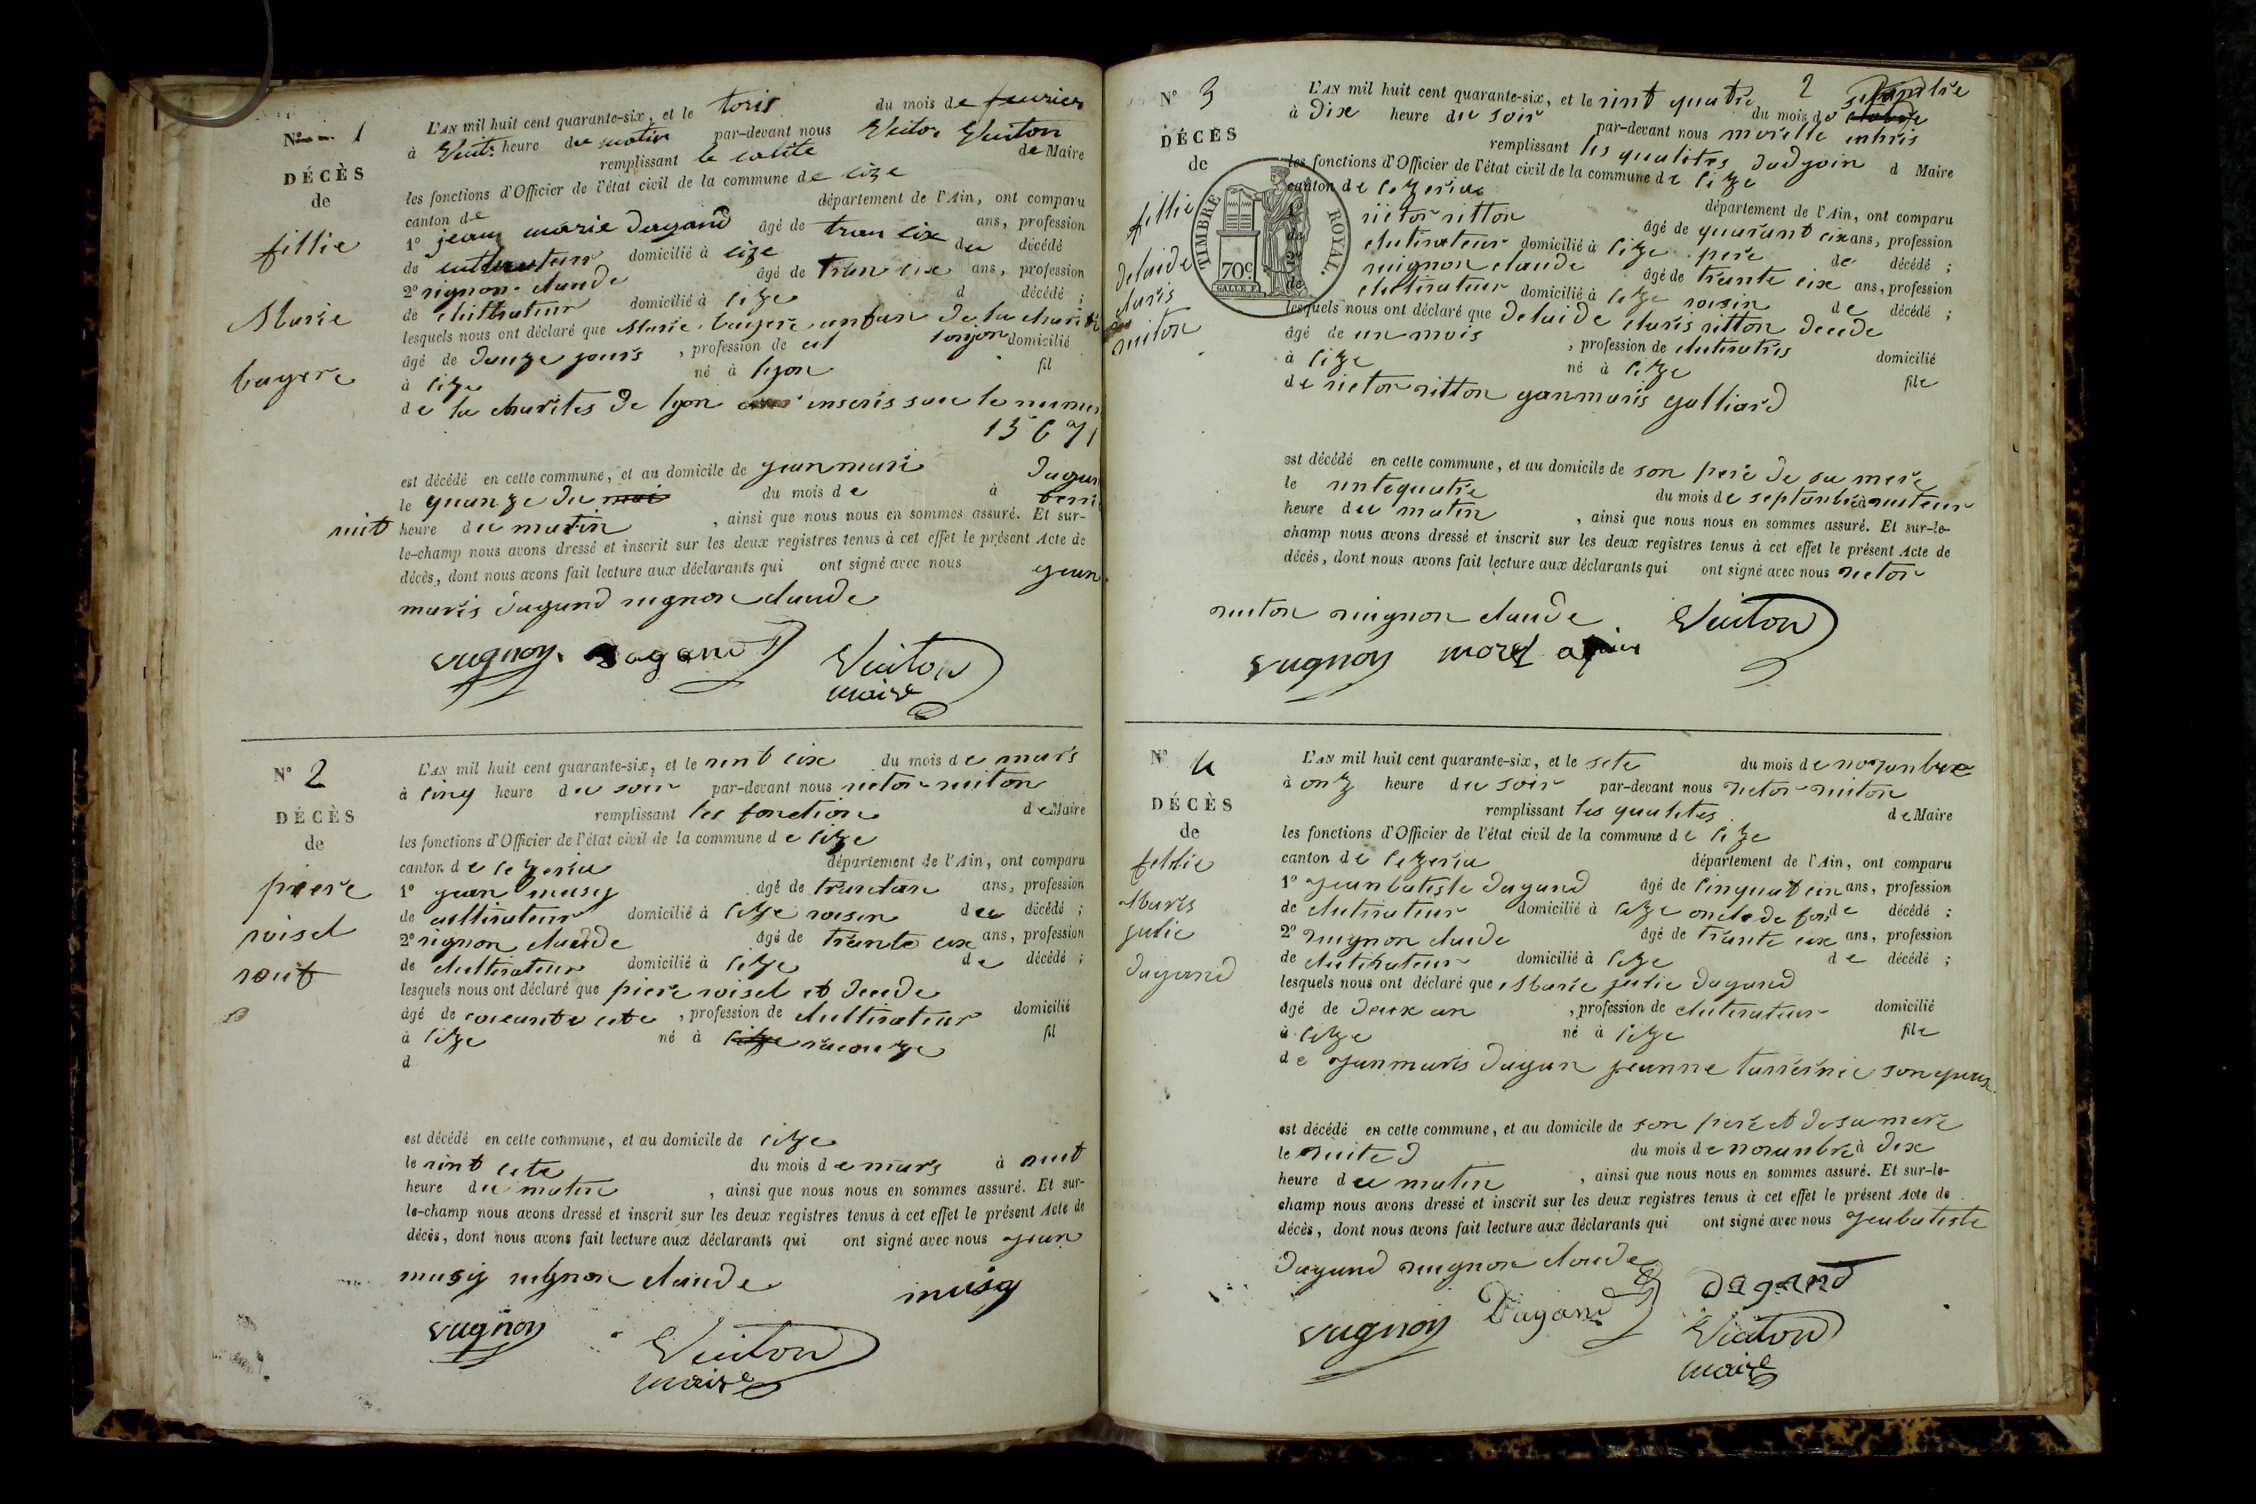 N° 1
DÉCÈS
de
fillie
Marie
bayere
L'AN mil huit cent quarante-six, et le toris du mois de feuvrier
à heure du matin par-devant nous Victor Vuiton
remplissant la calite de Maire
les fonctions d'Officier de l'état civil de la commune de cize
canton de département de l'Ain, ont comparu
1° jean marie dagand âgé de tran cix ans, profession
de domicilié à cize du décédé
2° vignon claude âgé de tran cix ans, profession
de cluttivateur domicilié à cize d décédé ;
lesquels nous ont déclaré que Marie bayere anfan de la charite
âgé de douze jours , profession de domicilié
à cize né à lyon fil
de la charites de lyon inscris sur le numer
13671
est décédé en cette commune, et au domicile de jean mari dagan
le quanze du mai du mois de à
nuit heure du matin , ainsi que nous nous en sommes assuré. Et sur-
le-champ nous avons dressé et inscrit sur les deux registres tenus à cet effet le présent Acte de
décès, dont nous avons fait lecture aux déclarants qui ont signé avec nous jean
maris dagand vugnon claude
vugnon dagand Vuiton
maire
N° 2
DÉCÈS
de
piere
voisel
L'AN mil huit cent quarante-six, et le vint cix du mois de mars
à cinq heure du soir par-devant nous victor vuiton
remplissant les fonction de Maire
les fonctions d'Officier de l'état civil de la commune de cize
canton de cezeria département de l'Ain, ont comparu
1° jean musy âgé de trantan ans, profession
de culttivateur domicilié à cize voisin du décédé ;
2° vignon claude âgé de trante cix ans, profession
de clulttivateur domicilié à cize de décédé ;
lesquels nous ont déclaré que piere voisel et decede
âgé de coicante cete , profession de clulttivateur domicilié
à cize né à cize fil
d
est décédé en cette commune, et au domicile de cize
le vint cete du mois de mars à nuit
heure du matin , ainsi que nous nous en sommes assuré. Et sur-
le-champ nous avons dressé et inscrit sur les deux registres tenus à cet effet le présent Acte de
décès, dont nous avons fait lecture aux déclarants qui ont signé avec nous jean
musy vugnon claude musy
vugnon Vuiton
maire
N° 3
DÉCÈS
de
fillie
delaide
claris
vuiton
TIMBRE ROYAL.
70c
2
L'AN mil huit cent quarante-six, et le vint quatre du mois de
à dix heure du soir par-devant nous
remplissant les qualites dadjoin d Maire
les fonctions d'Officier de l'état civil de la commune de cize
canton de cezeria département de l'Ain, ont comparu
1° victor vitton âgé de quarant cix ans, profession
de clutivateur domicilié à cize pere de décédé ;
2° vuignon claude âgé de trante cix ans, profession
de clutivateur domicilié à cize voisin de décédé ;
lesquels nous ont déclaré que delaide claris vitton decede
âgé de un mois , profession de clutivatris domicilié
à cize né à cize file
de victor vitton ganmaris galliard
est décédé en cette commune, et au domicile de son pere de sa mere
le vintequatre du mois de septanbre à
heure du matin , ainsi que nous nous en sommes assuré. Et sur-le-
champ nous avons dressé et inscrit sur les deux registres tenus à cet effet le présent Acte de
décès, dont nous avons fait lecture aux déclarants qui ont signé avec nous victor
vuiton vuignon claude Vuiton
vugnon morel
N° 4
DÉCÈS
de
fillie
Maris
julie
dagand
L'AN mil huit cent quarante-six, et le sete du mois de novanbre
à onz heure du soir par-devant nous victor vuiton
remplissant les qualites de Maire
les fonctions d'Officier de l'état civil de la commune de cize
canton de cezeria département de l'Ain, ont comparu
1° jeanbatiste dagand âgé de cinquat cin ans, profession
de clutivateur domicilié à cize oncle de décédé ;
2° vugnon claude âgé de trante cix ans, profession
de clutivateur domicilié à cize de décédé ;
lesquels nous ont déclaré que Marie julie dagand
âgé de deux an , profession de clutivateur domicilié
à cize né à cize file
de janmaris dagan jeanne
est décédé en cette commune, et au domicile de son pere et de sa mere
le du mois de novanbre à dix
heure du matin , ainsi que nous nous en sommes assuré. Et sur-le-
champ nous avons dressé et inscrit sur les deux registres tenus à cet effet le présent Acte de
décès, dont nous avons fait lecture aux déclarants qui ont signé avec nous jeabatiste
dagand vugnon claude
vugnon Dagand Dagand
Vuiton
maire